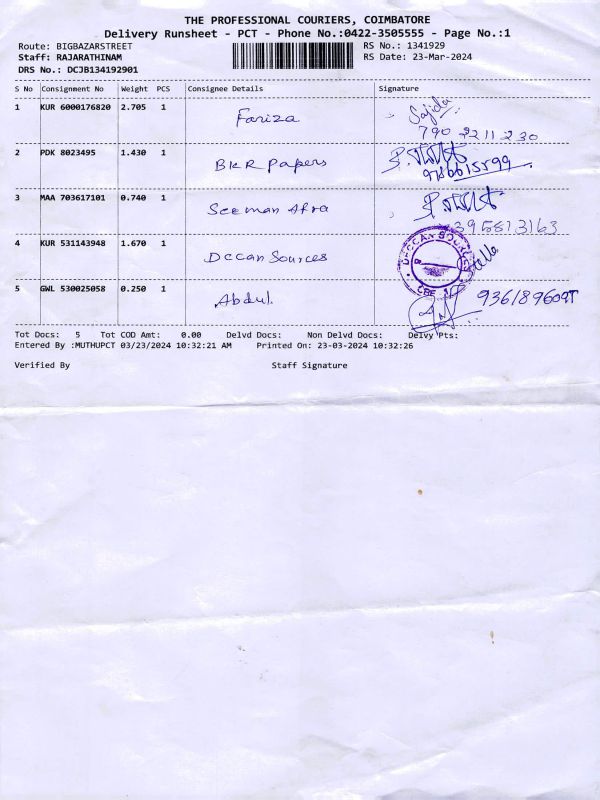 THE PROFESSIONAL COURIERS, COIMBATORE
Delivery Runsheet - PCT - Phone No.:0422-3505555 - Page No.:1
Route: BIGBAZARSTREET RS No.: 1341929
Staff: RAJARATHINAM RS Date: 23-Mar-2024
DRS No.: DCJB134192901
S No Consignment No Weight PCS Consignee Details Signature
1 KUR 6000176820 2.705 1 Fariza Sajida
790 2211 230
2 PDK 8023495 1.430 1 BKR Papers
3 MAA 703617101 0.740 1 Seeman Afra
4 KUR 531143948 1.670 1 Deccan Sources
DECCAN SOURCES
CBE
5 GWL 530025058 0.250 1 Abdul
Tot Docs: 5 Tot COD Amt: 0.00 Delvd Docs: Non Delvd Docs: Delvy Pts:
Entered By :MUTHUPCT 03/23/2024 10:32:21 AM Printed On: 23-03-2024 10:32:26
Verified By Staff Signature